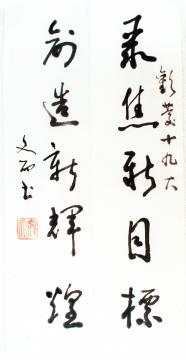 歡慶十九大
聚焦新目標
創造新輝煌
文石书